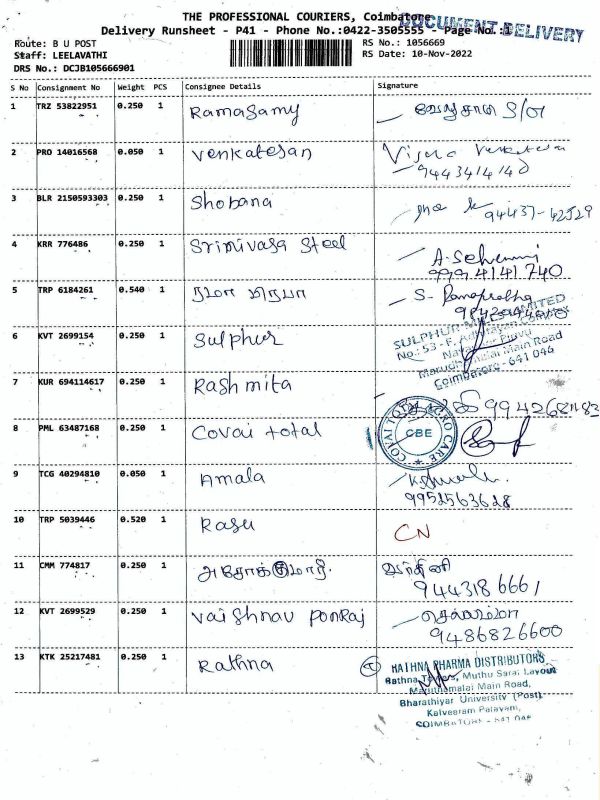 THE PROFESSIONAL COURIERS, Coimbatore
DOCUMENT DELIVERY
Delivery Runsheet - P41 - Phone No.:0422-3505555 - Page No.:1
Route: B U POST
RS No.: 1056669
Staff: LEELAVATHI
RS Date: 10-Nov-2022
DRS No.: DCJB105666901
S No Consignment No Weight PCS Consignee Details Signature
1 TRZ 53822951 0.250 1 Ramasamy S/O
2 PRO 14016568 0.050 1 Venkatesan
9443414140
3 BLR 2150593303 0.250 1 Shobana 94437-42529
4 KRR 776486 0.250 1 Srinivasa Steel A. Selvanni
9994141740
5 TRP 6184261 0.540 1 S. Ramaprabha
6 KVT 2699154 0.250 1 Sulphur
SULPHUR MILLS LIMITED
No.: 53 - F,
Marudhamalai Main Road
Coimbatore - 641 046
7 KUR 694114617 0.250 1 Rashmita
8 PML 63487168 0.250 1 Covai total
COVAI TOTAL AGRO CARE
CBE
9 TCG 40294810 0.050 1 Amala
9952563628
10 TRP 5039446 0.520 1 Rasu CN
11 CMM 774817 0.250 1
9443186661
12 KVT 2699529 0.250 1 Vaishnav Ponraj செல்லம்மா
9486826600
13 KTK 25217481 0.250 1 Rathna
RATHNA PHARMA DISTRIBUTORS
Rathna Towers, Muthu Sarai Layout
Maruthamalai Main Road,
Bharathiyar University (Post)
Kalveeram Palayam,
COIMBATORE - 641 046